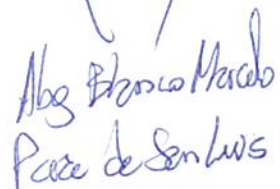 Abg Blanco Marcelo
de San Luis